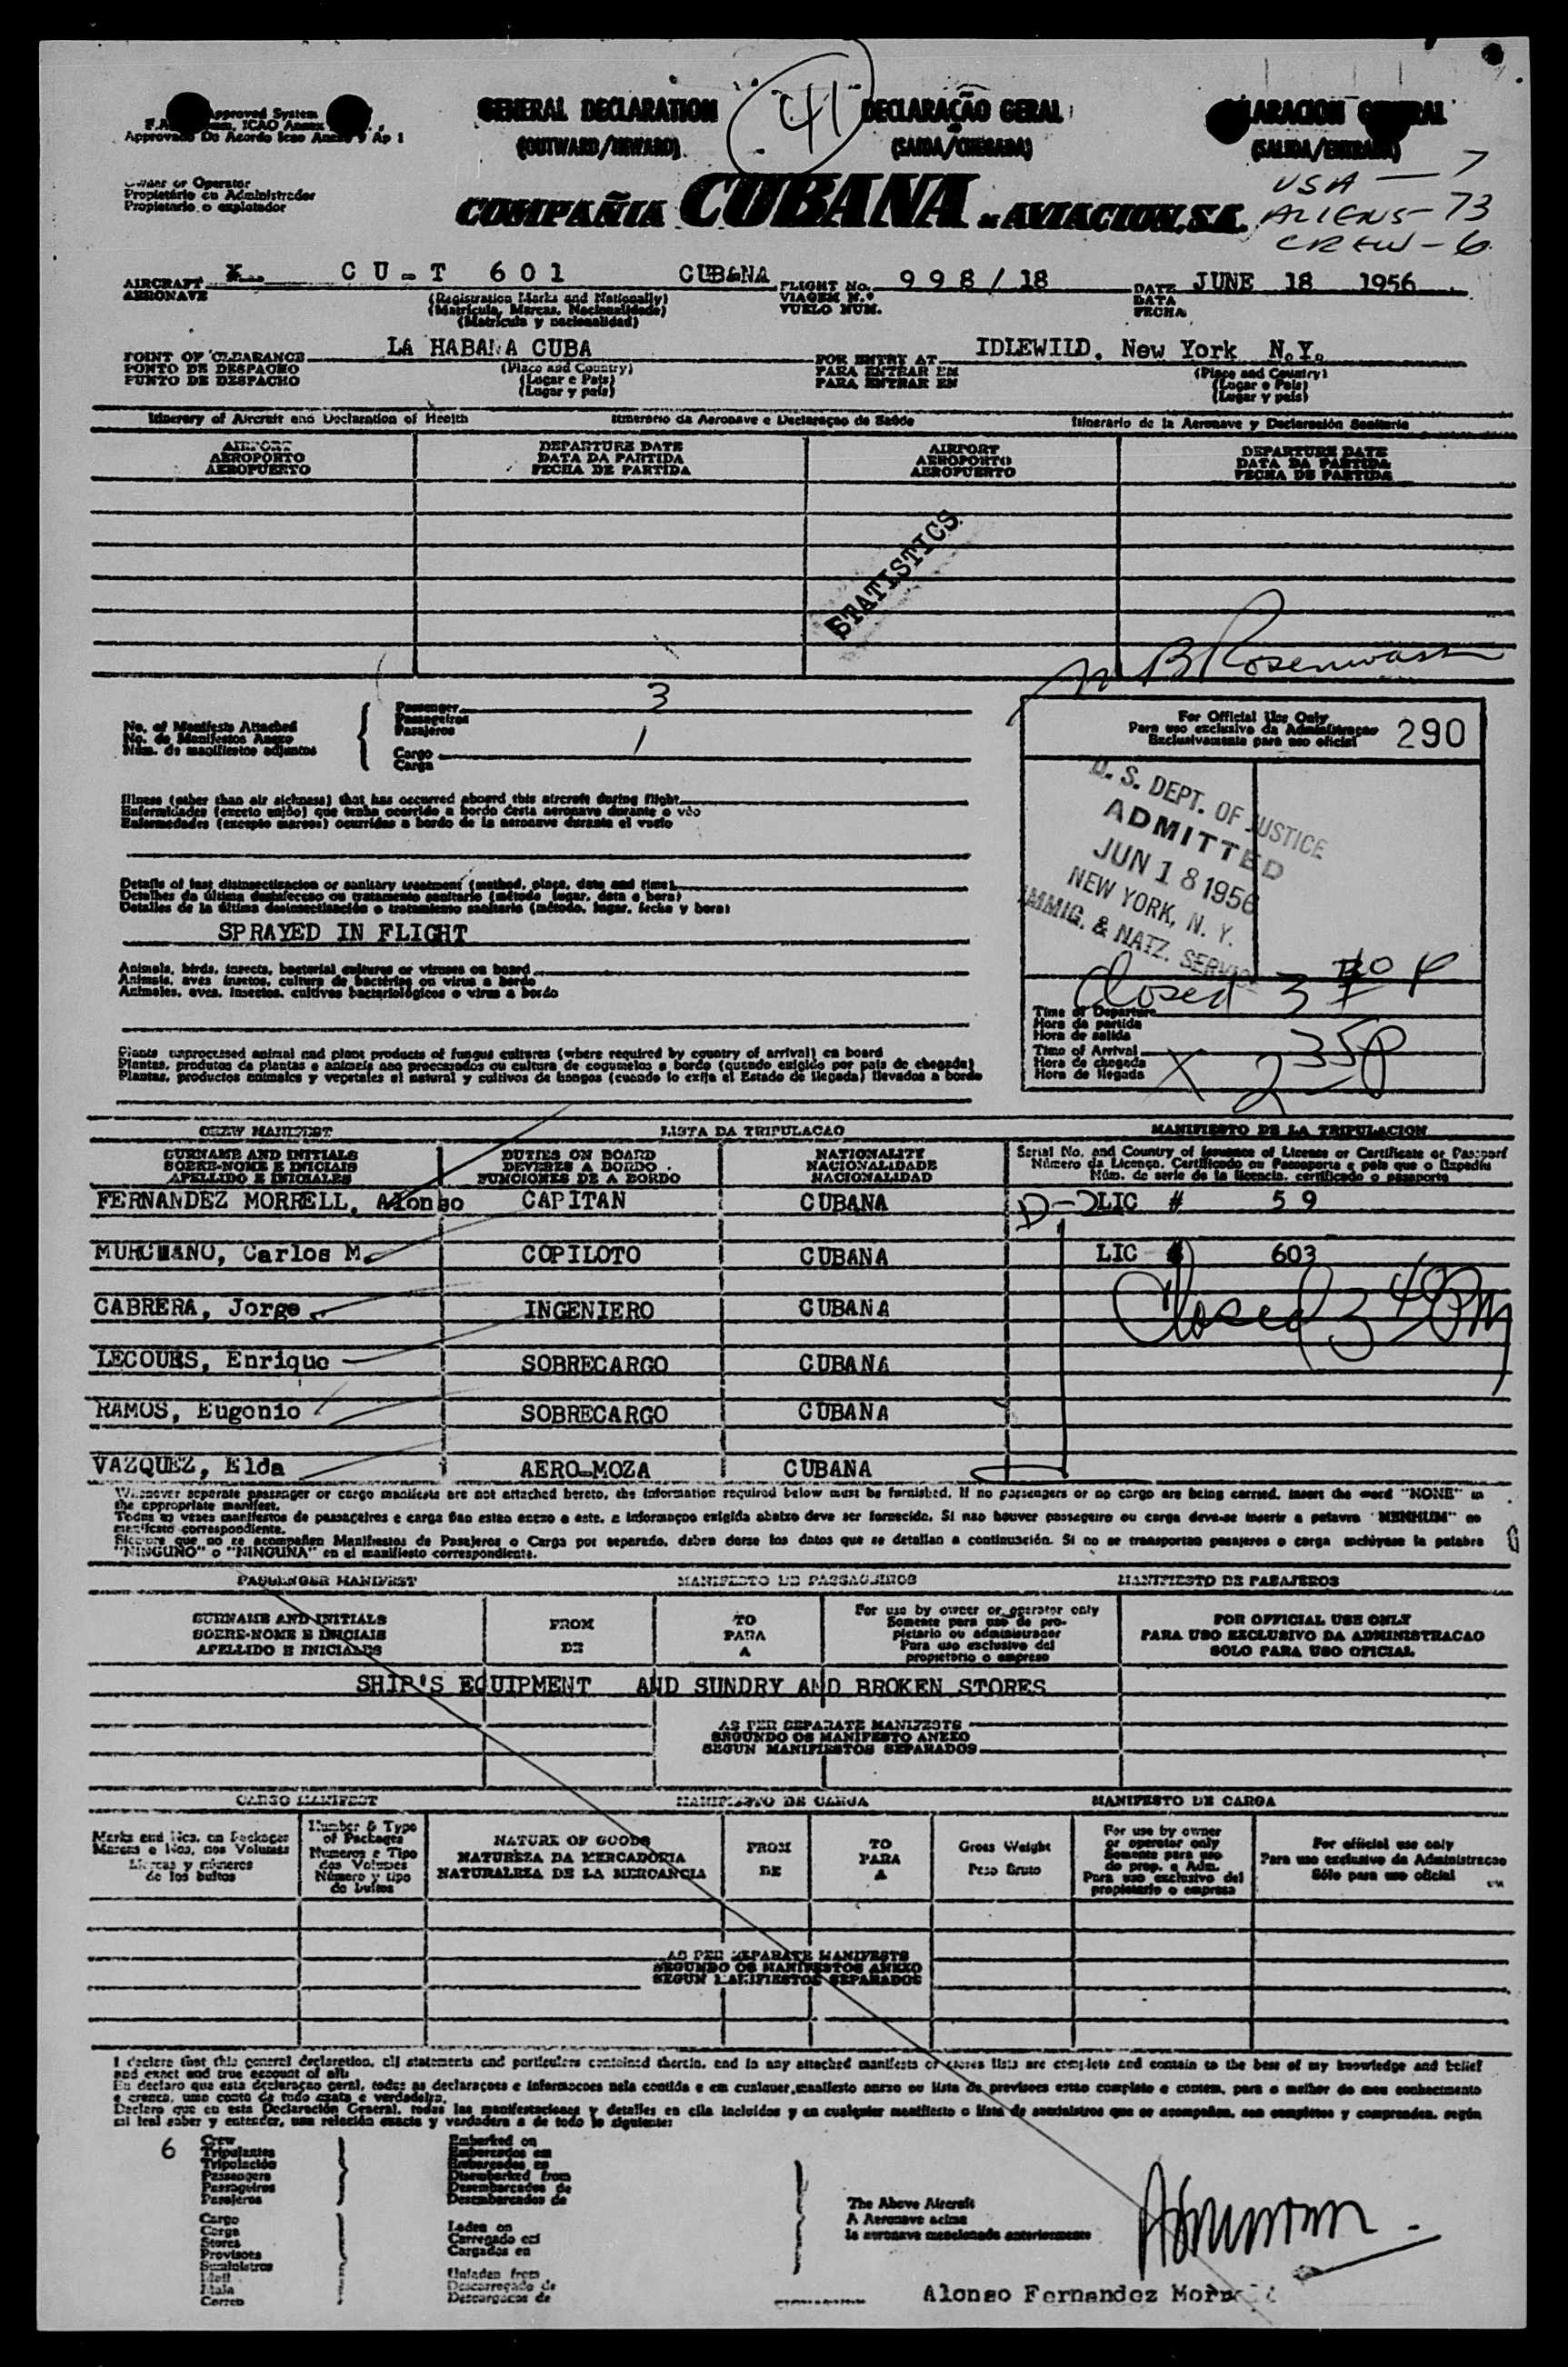 41
GENERAL DECLARATION
(OUTWARD/INWARD)
DECLARAÇÃO GERAL
(SAIDA/CHEGADA)
(SALIDA/ENTRADA)
Approved System
Approvado De Acordo Icao Anexo 9 Ap 1
Owner or Operator
Propietário ou Administrador
Propietario o explotador
COMPAÑIA CUBANA DE AVIACION, S.A.
USA — 7
ALIENS — 73
CREW — 6
AIRCRAFT X CU-T 601 CUBANA FLIGHT No. 998/18 DATE JUNE 18 1956
AERONAVE (Registration Marks and Nationally) VIAGEM N.º DATA
(Matricula, Marcas, Nacionalidade) VUELO NUM. FECHA
(Matricula y nacionalidad)
POINT OF CLEARANCE LA HABANA CUBA FOR ENTRY AT IDLEWILD, New York N.Y.
PONTO DE DESPACHO (Place and Country) PARA ENTRAR EM (Place and Country)
PUNTO DE DESPACHO (Lugar e Pais) PARA ENTRAR EN (Lugar e Pais)
(Lugar y pais) (Lugar y pais)
Itinerary of Aircraft and Declaration of Health Itinerario da Aeronave e Declaraçao de Saúde Itinerario de la Aeronave y Declaración Sanitaria
AIRPORT DEPARTURE DATE AIRPORT DEPARTURE DATE
AEROPORTO DATA DA PARTIDA AEROPORTO DATA DA PARTIDA
AEROPUERTO FECHA DE PARTIDA AEROPUERTO FECHA DE PARTIDA
STATISTICS
No. of Manifests Attached
No. de Manifestos Anexo
Núm. de manifiestos adjuntos
Passenger 3
Passageiros
Pasajeros
Cargo 1
Carga
For Official Use Only
Para uso exclusivo da Administraçao
Exclusivamente para uso oficial
290
U. S. DEPT. OF JUSTICE
ADMITTED
JUN 18 1956
NEW YORK, N. Y.
IMMIG. & NATZ. SERVICE
Illness (other than air sickness) that has occurred aboard this aircraft during flight
Enfermidades (exceto enjôo) que tenha ocorrido a bordo desta aeronave durante o vôo
Enfermedades (excepto mareos) ocurridas a bordo de la aeronave durante el vuelo
Details of last disinsectization or sanitary treatment (method, place, date and time)
Detalhes da última desinfeccao ou tratamento sanitario (método lugar, data e hora)
Detalles de la última desinsectización o tratamiento sanitario (método, lugar, fecha y hora)
SPRAYED IN FLIGHT
Animals, birds, insects, bacterial cultures or viruses on board
Animais, aves insetos, cultura de bactérias ou virus a bordo
Animales, aves, insectos, cultivos bacteriológicos o virus a bordo
Closed 3
Time of Departure
Hora da partida
Hora de salida
Time of Arrival X 2 35p
Hora de chegada
Hora de llegada
Plants unprocessed animal and plant products of fungus cultures (where required by country of arrival) on board
Plantas, produtos de plantas e animais nao processados ou cultura de cogumelos a bordo (quando exigido por pais de chegada)
Plantas, productos animales y vegetales al natural y cultivos de hongos (cuando lo exija el Estado de llegada) llevados a bordo
CREW MANIFEST LISTA DA TRIPULACAO MANIFIESTO DE LA TRIPULACION
SURNAME AND INITIALS DUTIES ON BOARD NATIONALITY Serial No. and Country of Issuance of Licence or Certificate or Passport
SOBRE-NOME E INICIAIS DEVERES A BORDO NACIONALIDADE Número da Licença, Certificado ou Passaporte e pais que o Expediu
APELLIDO E INICIALES FUNCIONES DE A BORDO NACIONALIDAD Núm. de serie de la licencia, certificado o pasaporte
FERNANDEZ MORRELL, Alonso CAPITAN CUBANA D-2 LIC # 59
MURCHANO, Carlos M. COPILOTO CUBANA LIC # 603
CABRERA, Jorge INGENIERO CUBANA Closed 3 40 PM
LECOURS, Enrique SOBRECARGO CUBANA
RAMOS, Eugenio SOBRECARGO CUBANA
VAZQUEZ, Elda AERO-MOZA CUBANA
Whenever separate passenger or cargo manifests are not attached hereto, the information required below must be furnished. If no passengers or no cargo are being carried, insert the word "NONE" in
the appropriate manifest.
Todas as vezes manifestos de passageiros e carga nao estao anexo a este, a informaçao exigida abaixo deve ser fornecida. Si nao houver passageiro ou carga deve-se inserir a palavra "NENHUM" no
manifesto correspondiente.
Siempre que no se acompañen Manifiestos de Pasajeros o Carga por separado, deben darse los datos que se detallan a continuación. Si no se transportan pasajeros o carga inclúyase la palabra
"NINGUNO" o "NINGUNA" en el manifiesto correspondiente.
PASSENGER MANIFEST MANIFESTO DE PASSAGEIROS MANIFIESTO DE PASAJEROS
SURNAME AND INITIALS FROM TO For use by owner or operator only FOR OFFICIAL USE ONLY
SOBRE-NOME E INICIAIS PARA Somente para uso de pro- PARA USO EXCLUSIVO DA ADMINISTRACAO
APELLIDO E INICIALES DE A pietario ou administrador SOLO PARA USO OFICIAL
Para uso exclusivo del
propietario o empresa
SHIP'S EQUIPMENT AND SUNDRY AND BROKEN STORES
AS PER SEPARATE MANIFESTS
SEGUNDO OS MANIFESTO ANEXO
SEGUN MANIFIESTOS SEPARADOS
CARGO MANIFEST MANIFIESTO DE CARGA MANIFESTO DE CARGA
Marks and Nos. on Packages
Marcas e Nos. nos Volumes
Marcas y números
de los bultos
Number & Type
of Packages
Numeros e Tipo
dos Volumes
Número y tipo
de bultos
NATURE OF GOODS
NATUREZA DA MERCADORIA
NATURALEZA DE LA MERCANCIA
FROM
DE
TO
PARA
A
Gross Weight
Peso Bruto
For use by owner
or operator only
Somente para uso
do prop. e Adm.
Para uso exclusivo del
propietario o empresa
For official use only
Para uso exclusivo da Administracao
Sólo para uso oficial
AS PER SEPARATE MANIFESTS
SEGUNDO OS MANIFESTOS ANEXO
SEGUN MANIFIESTOS SEPARADOS
I declare that this general declaration, all statements and particulars contained therein, and in any attached manifests or stores lists are complete and contain to the best of my knowledge and belief
and exact and true account of all:
Eu declaro que esta declaraçao geral, todas as declaraçoes e informacoes nela contida e em cualquer manifesto anexo ou lista de previsoes estao completo e contem, para o melhor do meu conhecimento
e crenca, uma conta de tudo exata e verdadeira.
Declaro que en esta Declaración General, todas las manifestaciones y detalles en ella incluidos y en cualquier manifiesto o lista de suministros que se acompañen, son completos y comprenden, según
mi leal saber y entender, una relación exacta y verdadera a de todo lo siguiente:
6 Crew
Tripulantes
Tripulación
Passengers
Passageiros
Pasajeros
Embarked on
Embarcados em
Embarcados en
Disembarked from
Desembarcados de
Desembarcados de
Cargo
Carga
Stores
Provisoes
Suministros
Mail
Mala
Correo
Laden on
Carregado em
Cargados en
Unladen from
Descarregado de
Descargados de
The Above Aircraft
A Aeronave acima
la aeronave mencionada anteriormente
Alonso Fernandez